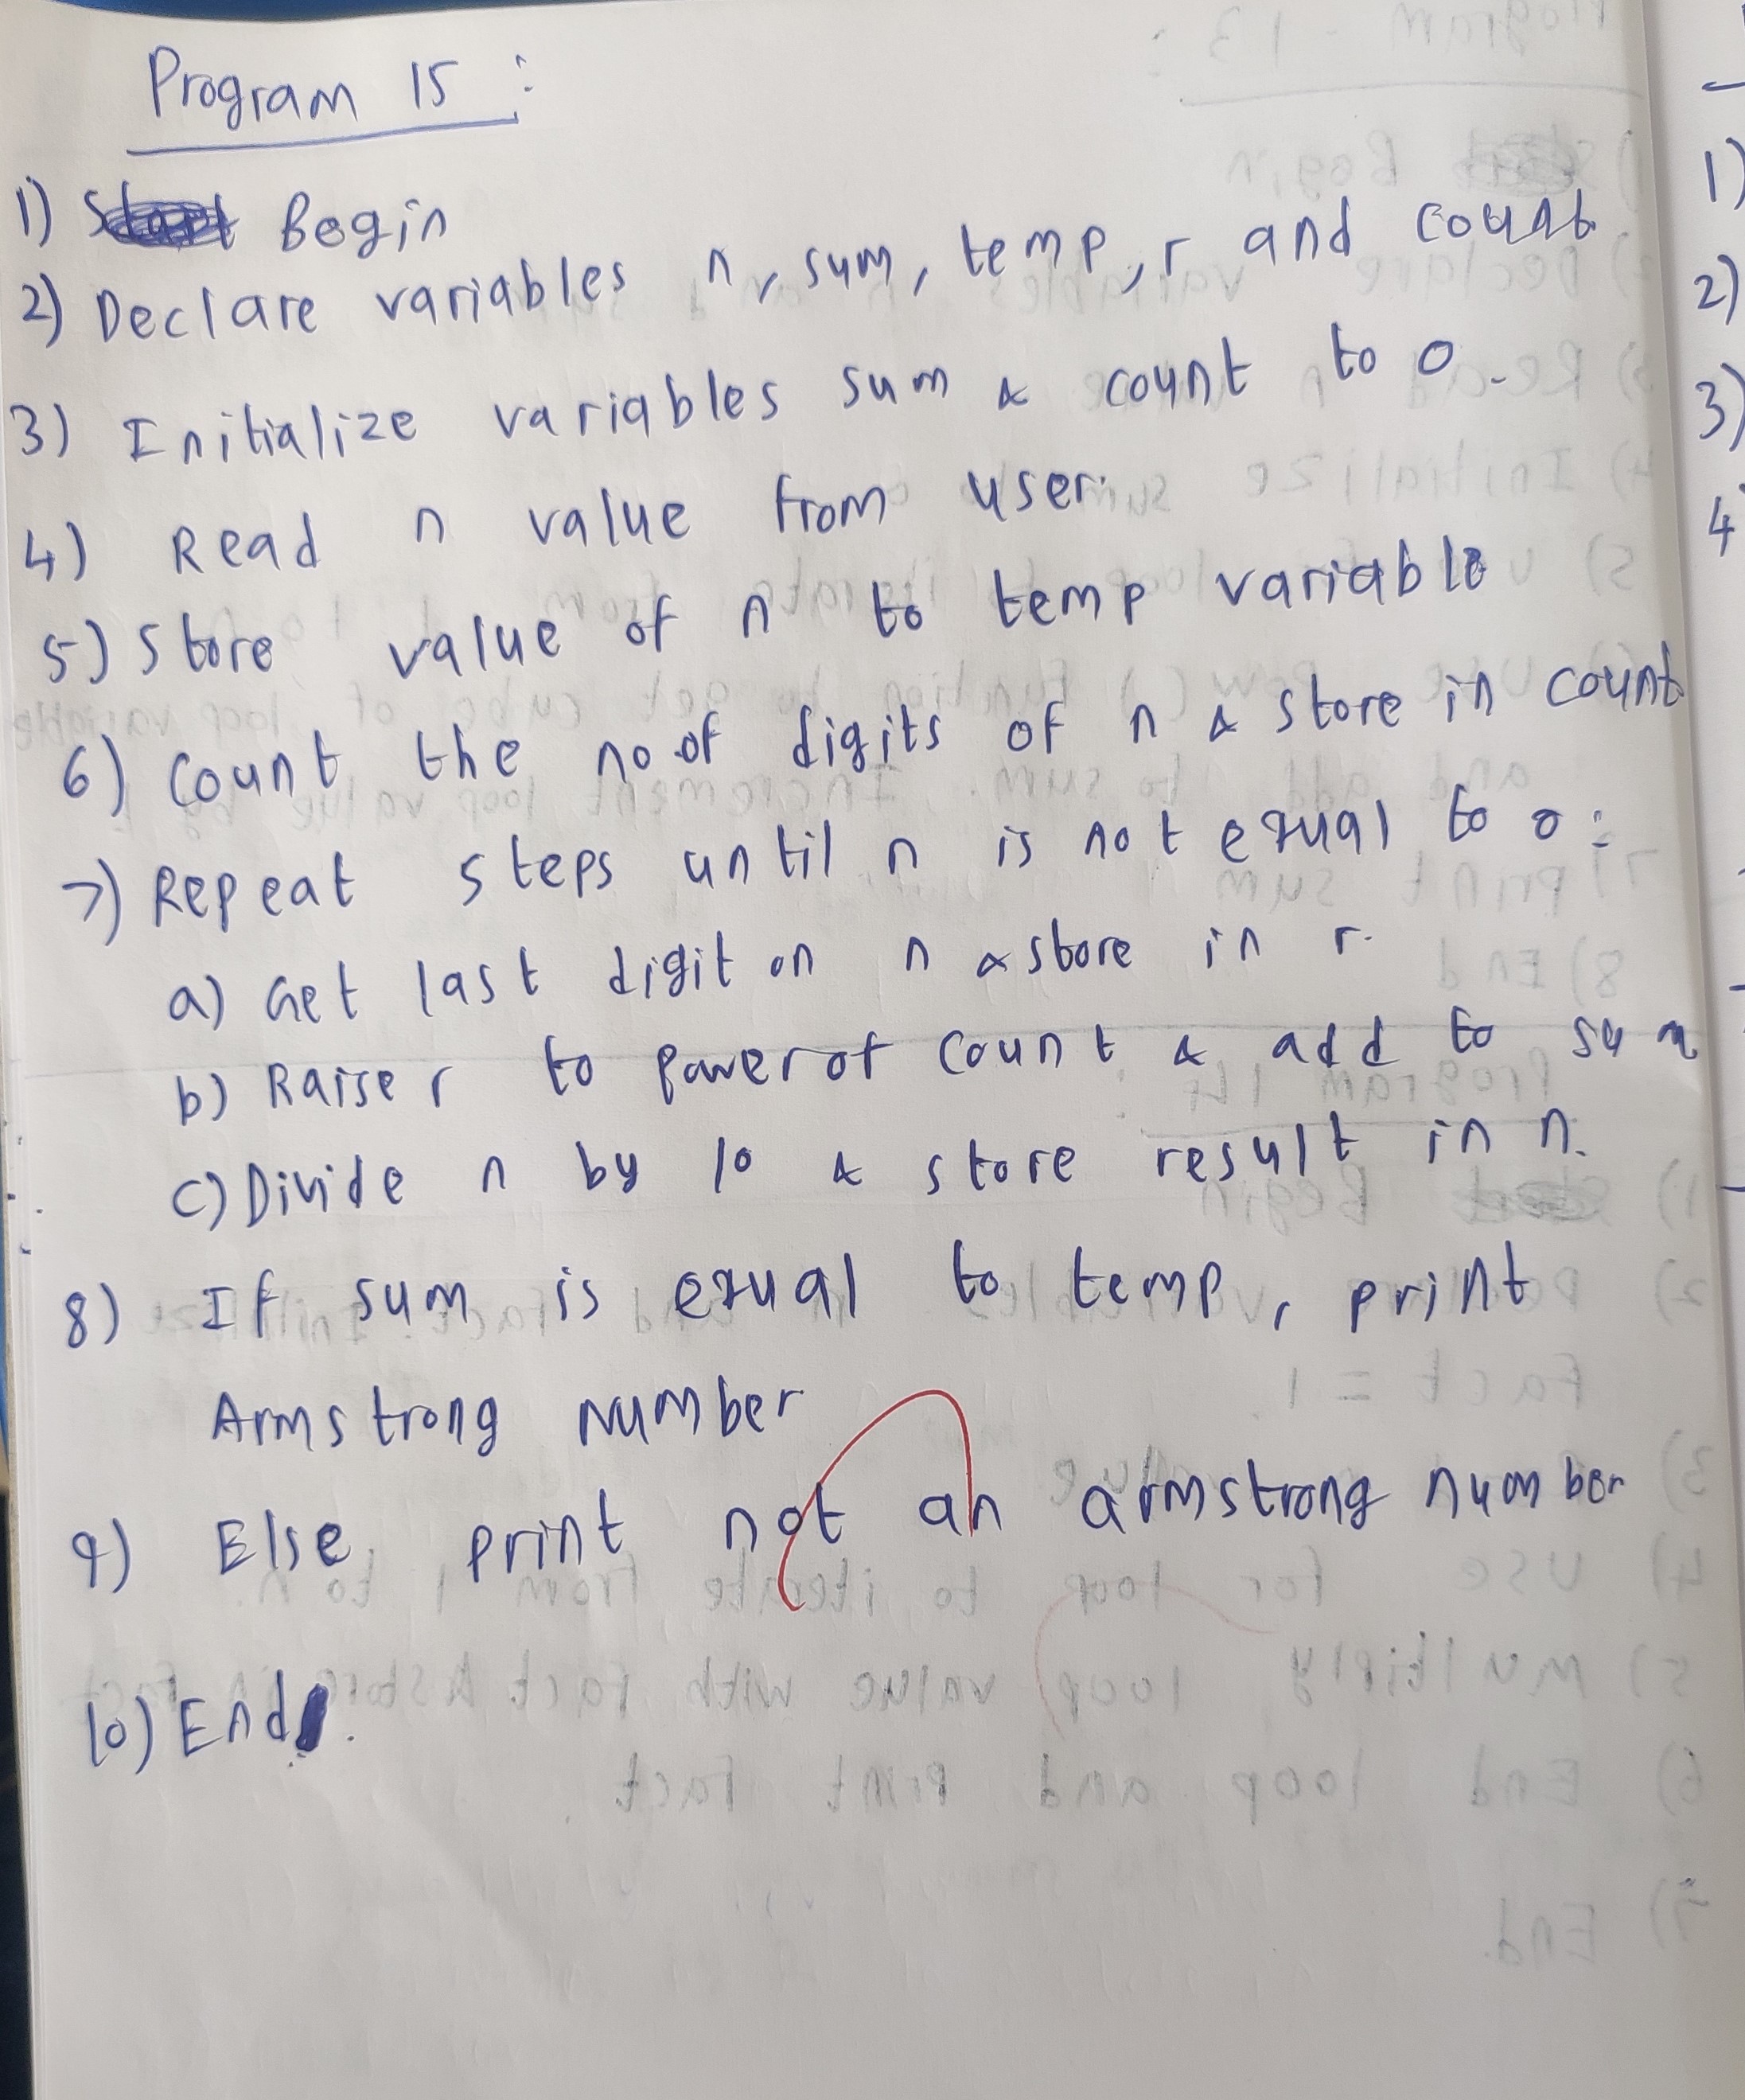 Program 15 :
1) Begin
2) Declare variables n, sum, temp, r and count
3) Initialize variables sum & count to 0.
4) Read n value from user.
5) Store value of n to temp variable
6) Count the no of digits of n & store in count
7) Repeat steps until n is not equal to 0 :
a) Get last digit on n & store in r.
b) Raise r to power of count & add to sum
c) Divide n by 10 & store result in n.
8) If sum is equal to temp, print
Armstrong number
9) Else, print not an armstrong number
10) End.
1)
2)
3)
4